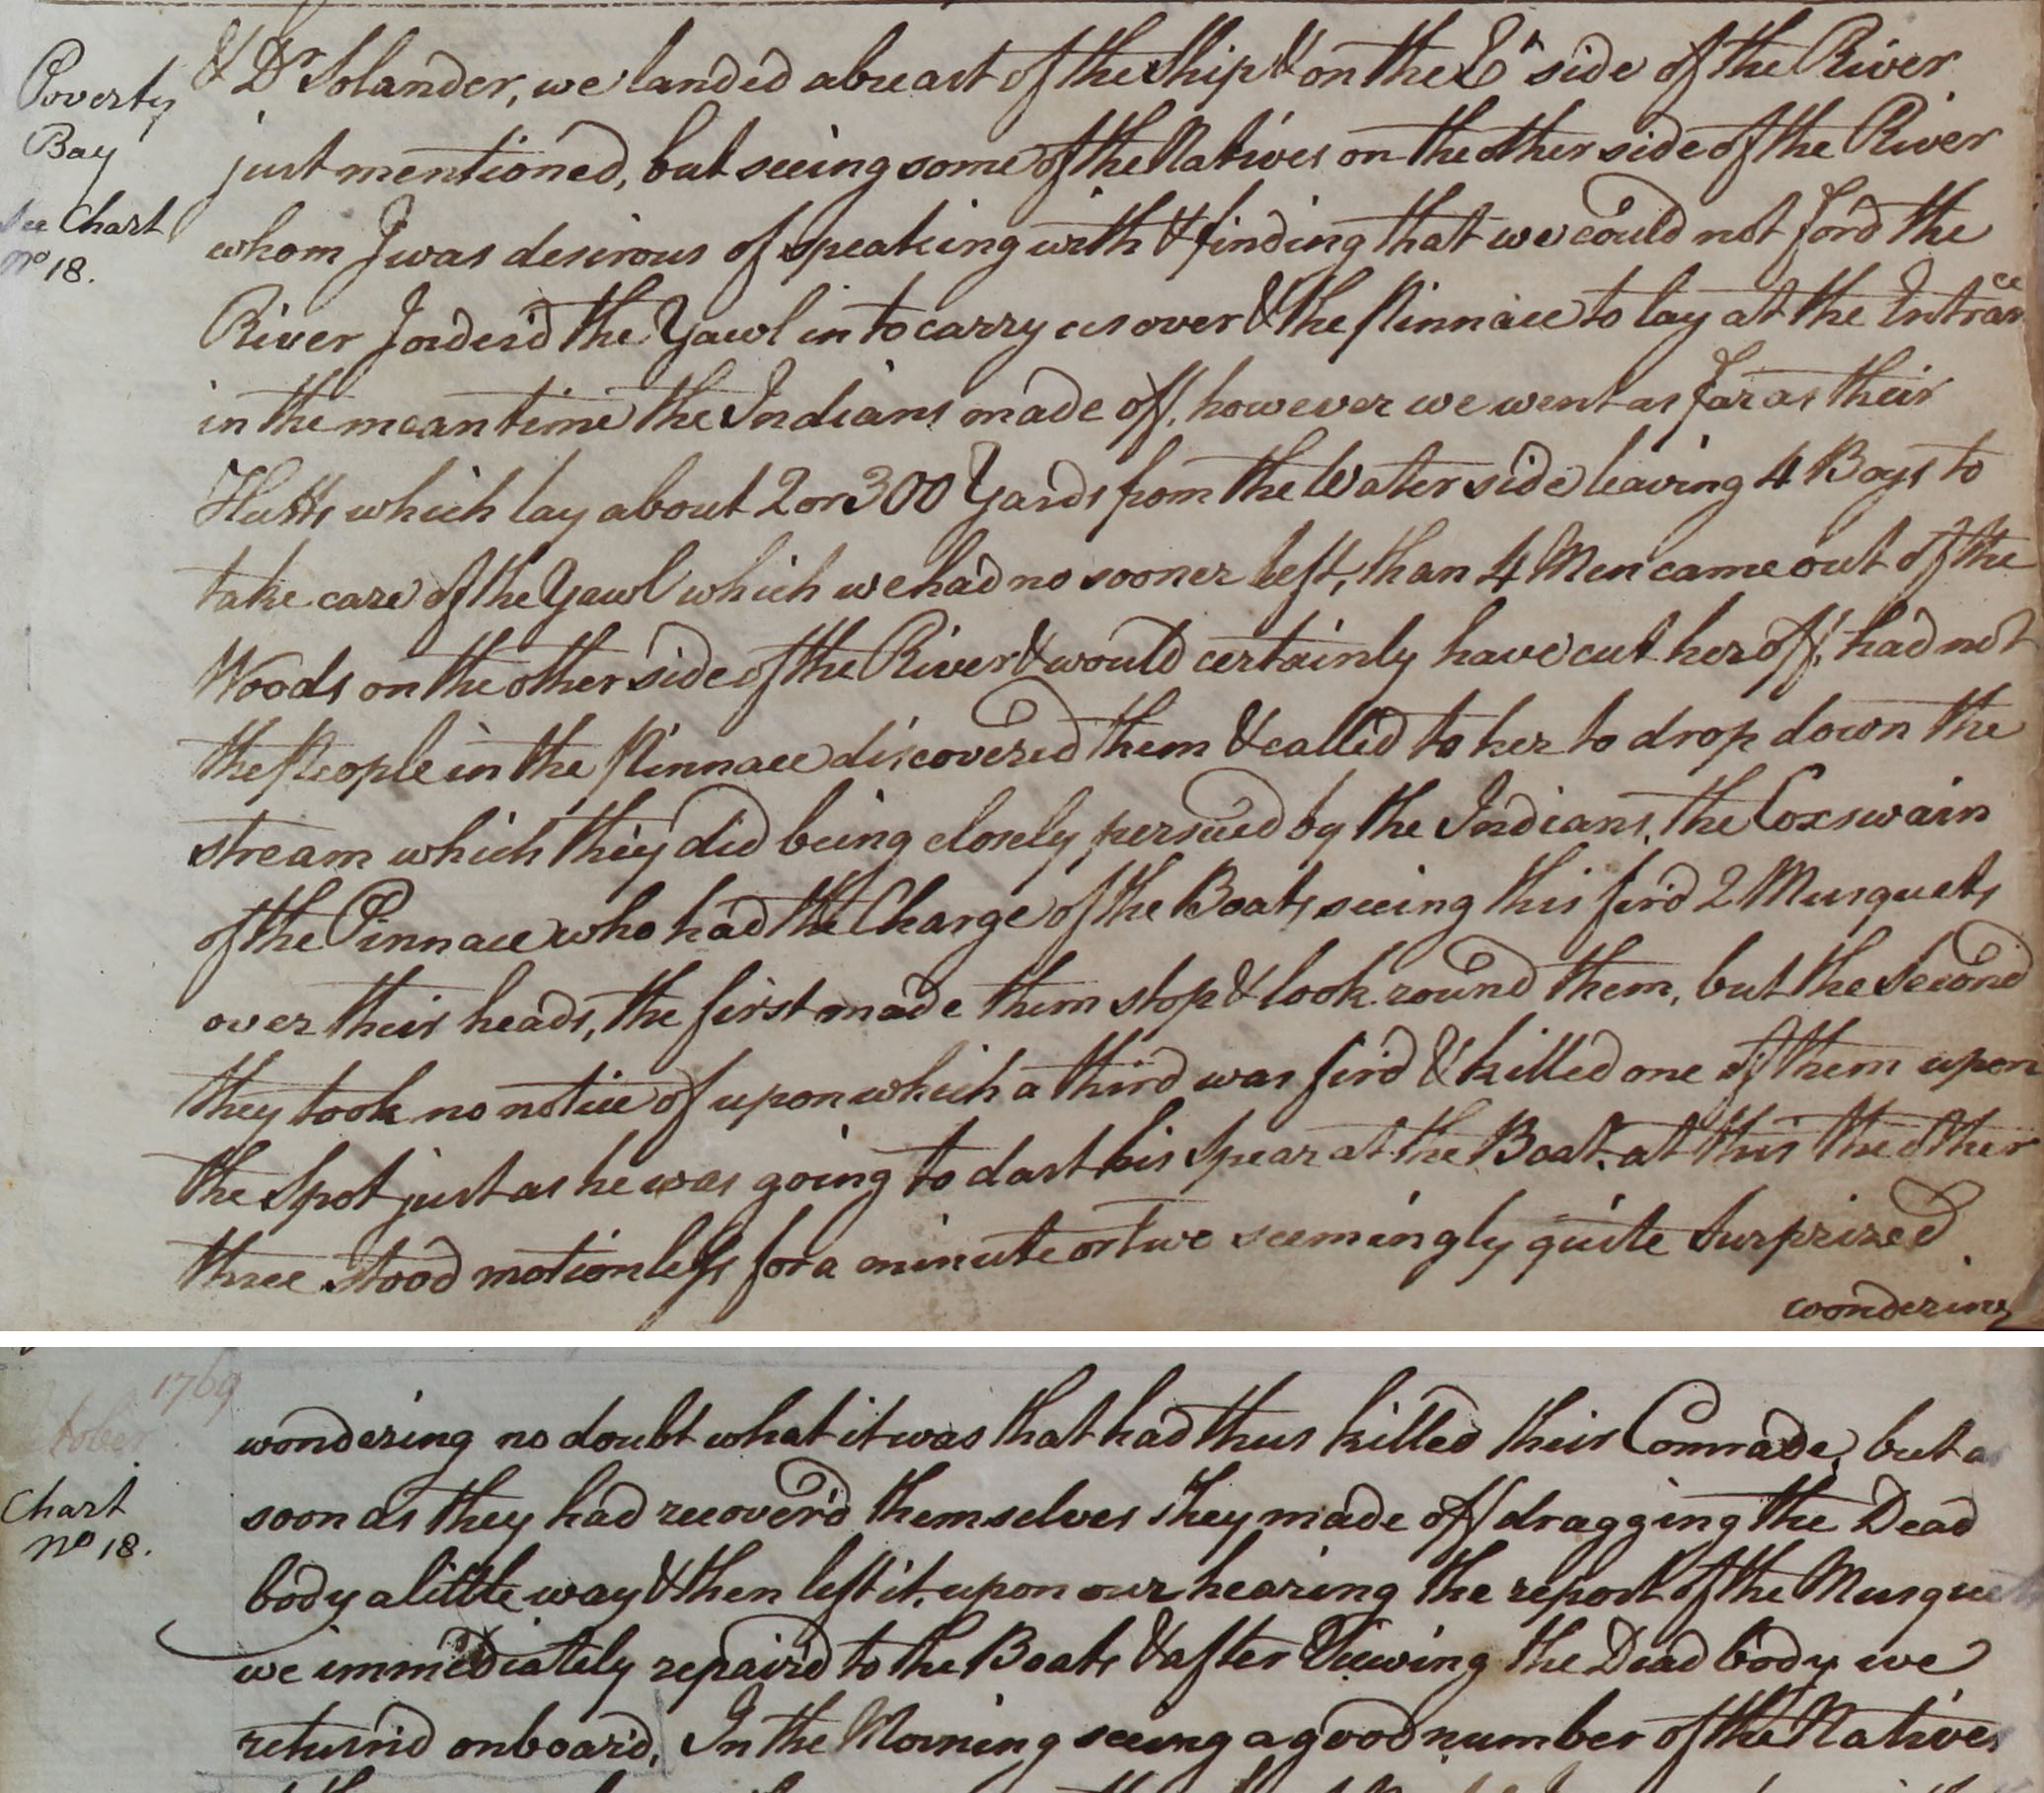 Poverty
Bay
see Chart
No 18.
& Dr Solander, we landed abreast of the Ship & on the Et side of the River
just mentioned, but seeing some of the Natives on the other side of the River
whom I was desirous of speaking with & finding that we could not ford the
River I order'd the Yawl in to carry us over & the Pinnace to lay at the Entrance
in the mean time the Indians made off, however we went as far as their
Hutts which lay about 2 or 300 Yards from the Water side leaving 4 Boys to
take care of the Yawl which we had no sooner left, than 4 Men came out of the
Woods on the other side of the River & would certainly have cut her off, had not
the People in the Pinnace discovered them & called to her to drop down the
stream which they did being closely persued by the Indians, the Coxswain
of the Pinnace who had the Charge of the Boats seeing this fir'd 2 Musquets
over their heads, the first made them stop & look round them, but the second
they took no notice of upon which a third was fir'd & killed one of them upon
the Spot just as he was going to dart his Spear at the Boat. at this the other
three stood motionless for a minute or two seemingly quite surprized
wondering
1769
tober
Chart
No 18.
wondering no doubt what it was that had thus killed their Comrade, but as
soon as they had recover'd themselves they made off dragging the Dead
body a little way & then left it, upon our hearing the report of the Musquets
we immediately repair'd to the Boats & after Viewing the Dead body we
return'd onboard. In the Morning seeing a good number of the Natives